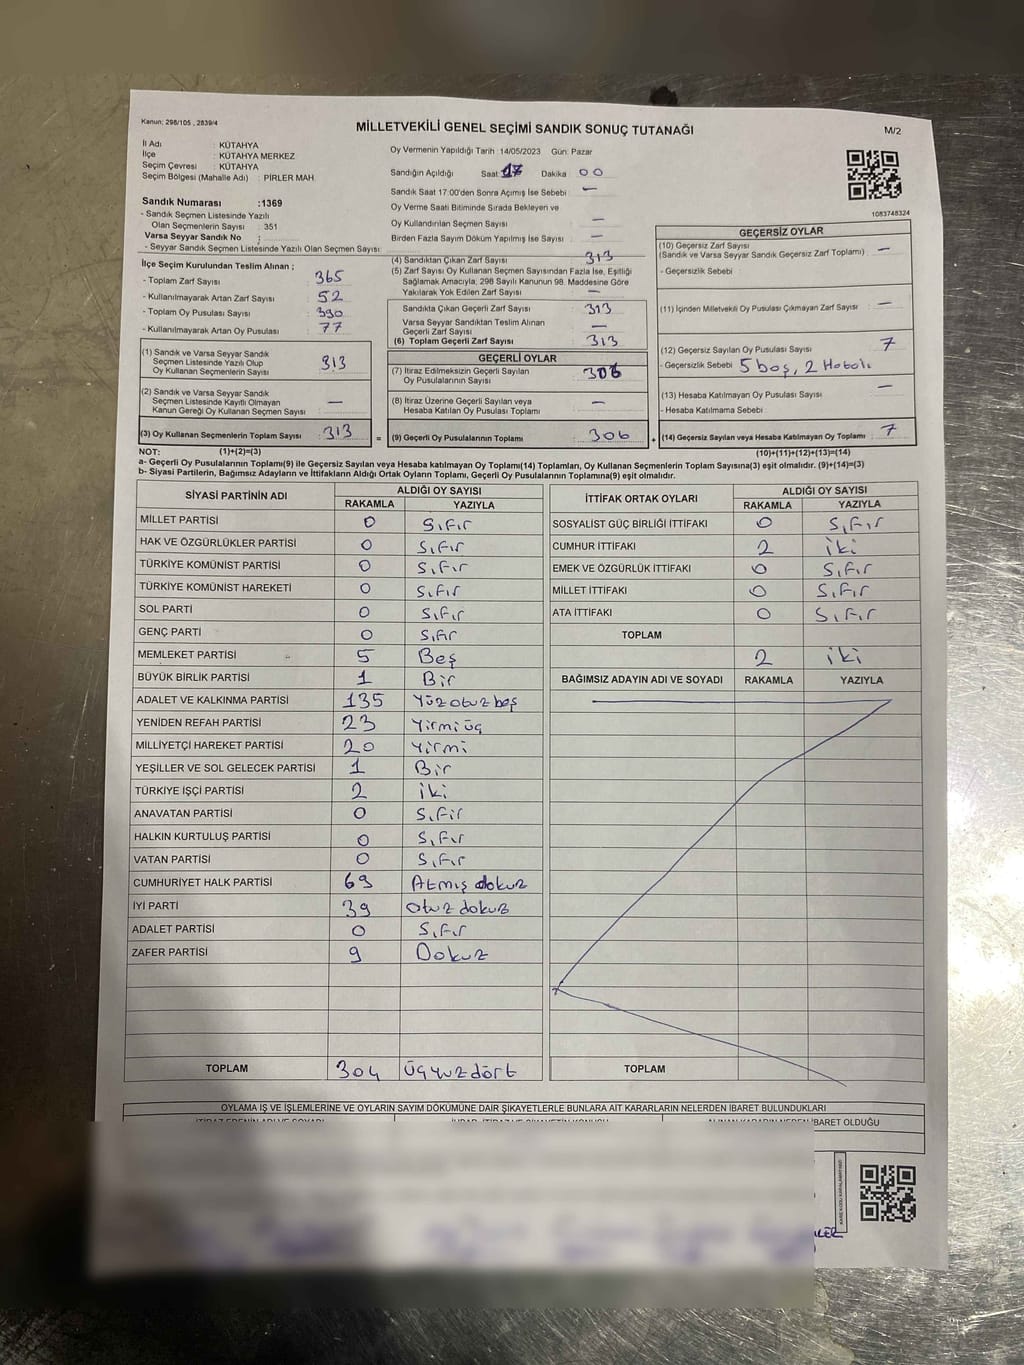 Kanun: 298/105 , 2839/4
MİLLETVEKİLİ GENEL SEÇİMİ SANDIK SONUÇ TUTANAĞI
M/2
İl Adı : KÜTAHYA
İlçe : KÜTAHYA MERKEZ
Seçim Çevresi : KÜTAHYA
Seçim Bölgesi (Mahalle Adı) : PİRLER MAH.
Oy Vermenin Yapıldığı Tarih 14/05/2023 Gün: Pazar
Sandığın Açıldığı Saat 17 Dakika 00
Sandık Saat 17:00'den Sonra Açımış İse Sebebi —
Oy Verme Saati Bitiminde Sırada Bekleyen ve
Oy Kullandırılan Seçmen Sayısı —
Birden Fazla Sayım Döküm Yapılmış İse Sayısı —
1083748324
Sandık Numarası :1369
- Sandık Seçmen Listesinde Yazılı
Olan Seçmenlerin Sayısı : 351
Varsa Seyyar Sandık No :
- Seyyar Sandık Seçmen Listesinde Yazılı Olan Seçmen Sayısı:
İlçe Seçim Kurulundan Teslim Alınan ;
- Toplam Zarf Sayısı 365
- Kullanılmayarak Artan Zarf Sayısı 52
- Toplam Oy Pusulası Sayısı 390
- Kullanılmayarak Artan Oy Pusulası 77
(1) Sandık ve Varsa Seyyar Sandık
Seçmen Listesinde Yazılı Olup
Oy Kullanan Seçmenlerin Sayısı 313
(2) Sandık ve Varsa Seyyar Sandık
Seçmen Listesinde Kayıtlı Olmayan
Kanun Gereği Oy Kullanan Seçmen Sayısı —
(3) Oy Kullanan Seçmenlerin Toplam Sayısı 313 =
(4) Sandıktan Çıkan Zarf Sayısı 313
(5) Zarf Sayısı Oy Kullanan Seçmen Sayısından Fazla İse, Eşitliği
Sağlamak Amacıyla, 298 Sayılı Kanunun 98. Maddesine Göre
Yakılarak Yok Edilen Zarf Sayısı —
Sandıkta Çıkan Geçerli Zarf Sayısı 313
Varsa Seyyar Sandıktan Teslim Alınan
Geçerli Zarf Sayısı —
(6) Toplam Geçerli Zarf Sayısı 313
GEÇERLİ OYLAR
(7) İtiraz Edilmeksizin Geçerli Sayılan
Oy Pusulalarının Sayısı 306
(8) İtiraz Üzerine Geçerli Sayılan veya
Hesaba Katılan Oy Pusulası Toplamı —
(9) Geçerli Oy Pusulalarının Toplamı 306 +
GEÇERSİZ OYLAR
(10) Geçersiz Zarf Sayısı —
(Sandık ve Varsa Seyyar Sandık Geçersiz Zarf Toplamı)
- Geçersizlik Sebebi
(11) İçinden Milletvekili Oy Pusulası Çıkmayan Zarf Sayısı —
(12) Geçersiz Sayılan Oy Pusulası Sayısı 7
- Geçersizlik Sebebi 5 boş, 2 Hatalı
(13) Hesaba Katılmayan Oy Pusulası Sayısı —
- Hesaba Katılmama Sebebi
(14) Geçersiz Sayılan veya Hesaba Katılmayan Oy Toplamı 7
NOT: (1)+(2)=(3) (10)+(11)+(12)+(13)=(14)
a- Geçerli Oy Pusulalarının Toplamı(9) ile Geçersiz Sayılan veya Hesaba katılmayan Oy Toplamı(14) Toplamları, Oy Kullanan Seçmenlerin Toplam Sayısına(3) eşit olmalıdır. (9)+(14)=(3)
b- Siyasi Partilerin, Bağımsız Adayların ve İttifakların Aldığı Oyların Toplamı, Geçerli Oy Pusulalarının Toplamına(9) eşit olmalıdır.
SİYASİ PARTİNİN ADI ALDIĞI OY SAYISI
RAKAMLA YAZIYLA
MİLLET PARTİSİ 0 Sıfır
HAK VE ÖZGÜRLÜKLER PARTİSİ 0 Sıfır
TÜRKİYE KOMÜNİST PARTİSİ 0 Sıfır
TÜRKİYE KOMÜNİST HAREKETİ 0 Sıfır
SOL PARTİ 0 Sıfır
GENÇ PARTİ 0 Sıfır
MEMLEKET PARTİSİ 5 Beş
BÜYÜK BİRLİK PARTİSİ 1 Bir
ADALET VE KALKINMA PARTİSİ 135 Yüzotuzbeş
YENİDEN REFAH PARTİSİ 23 Yirmiüç
MİLLİYETÇİ HAREKET PARTİSİ 20 Yirmi
YEŞİLLER VE SOL GELECEK PARTİSİ 1 Bir
TÜRKİYE İŞÇİ PARTİSİ 2 iki
ANAVATAN PARTİSİ 0 Sıfır
HALKIN KURTULUŞ PARTİSİ 0 Sıfır
VATAN PARTİSİ 0 Sıfır
CUMHURİYET HALK PARTİSİ 69 Atmış dokuz
İYİ PARTİ 39 Otuz dokuz
ADALET PARTİSİ 0 Sıfır
ZAFER PARTİSİ 9 Dokuz
TOPLAM 304 Üçyuzdört
İTTİFAK ORTAK OYLARI ALDIĞI OY SAYISI
RAKAMLA YAZIYLA
SOSYALİST GÜÇ BİRLİĞİ İTTİFAKI 0 Sıfır
CUMHUR İTTİFAKI 2 iki
EMEK VE ÖZGÜRLÜK İTTİFAKI 0 Sıfır
MİLLET İTTİFAKI 0 Sıfır
ATA İTTİFAKI 0 Sıfır
TOPLAM
2 iki
BAĞIMSIZ ADAYIN ADI VE SOYADI RAKAMLA YAZIYLA
TOPLAM
OYLAMA İŞ VE İŞLEMLERİNE VE OYLARIN SAYIM DÖKÜMÜNE DAİR ŞİKAYETLERLE BUNLARA AİT KARARLARIN NELERDEN İBARET BULUNDUKLARI
İBARET OLDUĞU